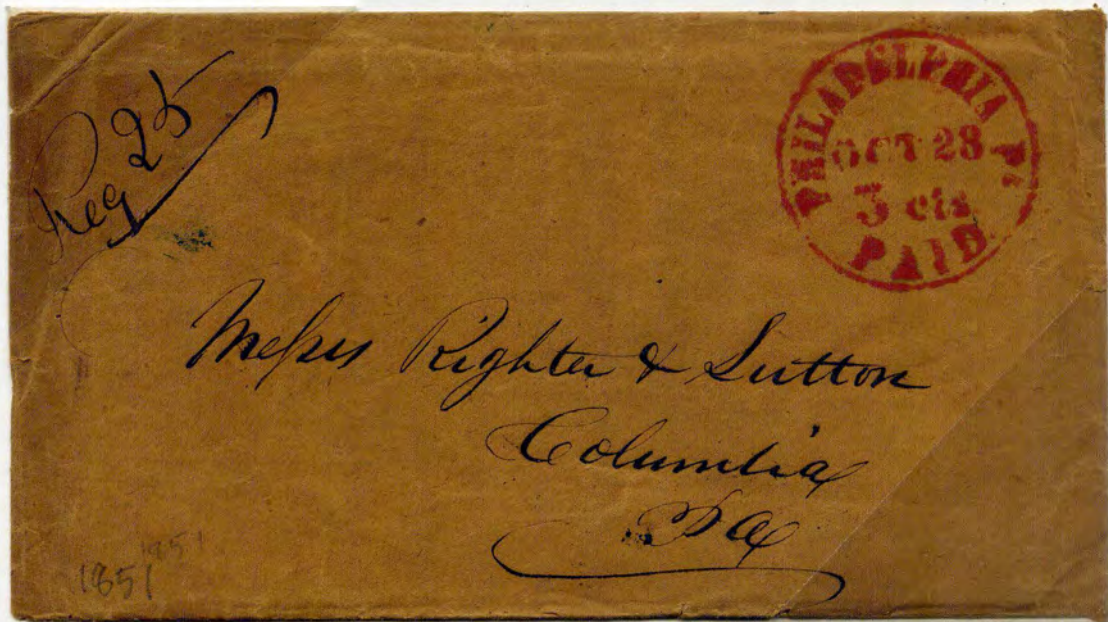 Reg 25
PHILADELPHIA Pa
OCT 28
3 cts
PAID
Messrs Righter & Sutton
Columbia
Pa
1851
1851